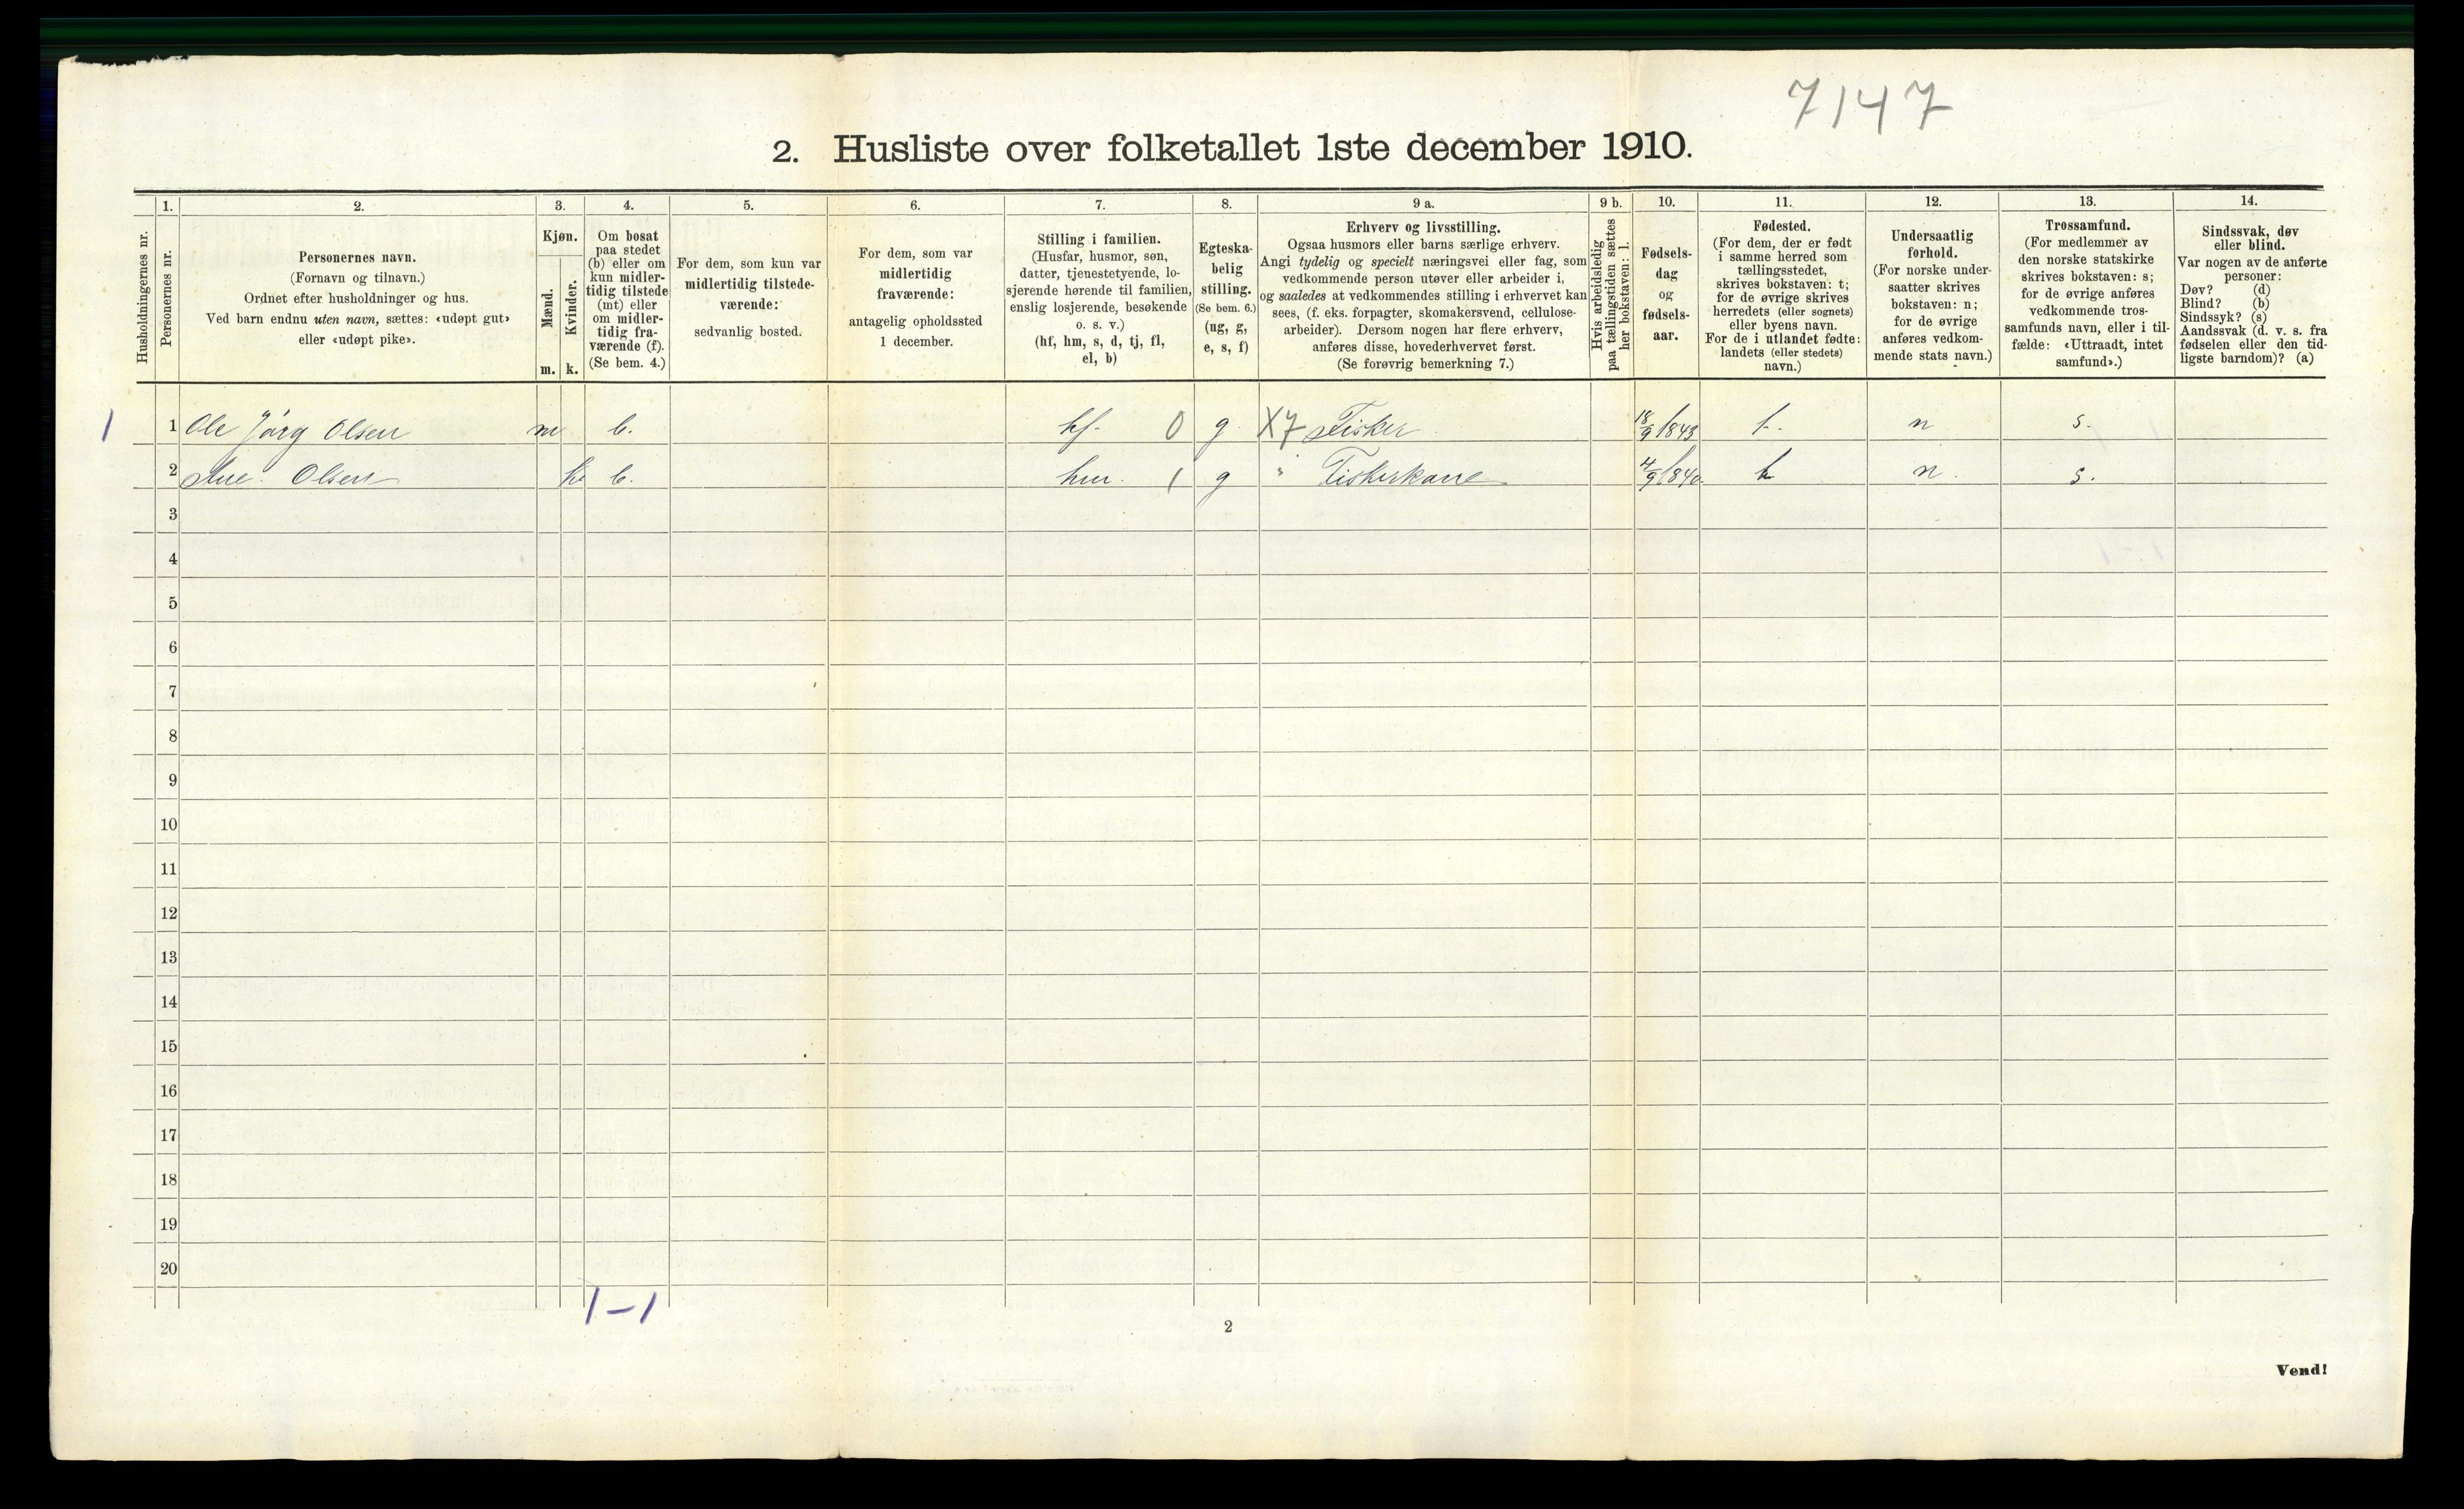 7147
2. Husliste over folketallet 1ste december 1910.
Husholdningernes nr.
1.
Personernes nr.
2.
Personernes navn.
(Fornavn og tilnavn.)
Ordnet efter husholdninger og hus.
Ved barn endnu uten navn, sættes: «udøpt gut»
eller «udøpt pike».
3.
Kjøn.
Mænd.
Kvinder.
m. k.
4.
Om bosat
paa stedet
(b) eller om
kun midler-
tidig tilstede
(mt) eller
om midler-
tidig fra-
værende (f).
(Se bem. 4.)
5.
For dem, som kun var
midlertidig tilstede-
værende:
sedvanlig bosted.
6.
For dem, som var
midlertidig
fraværende:
antagelig opholdssted
1 december.
7.
Stilling i familien.
(Husfar, husmor, søn,
datter, tjenestetyende, lo-
sjerende hørende til familien,
enslig losjerende, besøkende
o. s. v.)
(hf, hm, s, d, tj, fl,
el, b)
8.
Egteska-
belig
stilling.
(Se bem. 6.)
(ug, g,
e, s, f)
9 a.
Erhverv og livsstilling.
Ogsaa husmors eller barns særlige erhverv.
Angi tydelig og specielt næringsvei eller fag, som
vedkommende person utøver eller arbeider i,
og saaledes at vedkommendes stilling i erhvervet kan
sees, (f. eks. forpagter, skomakersvend, cellulose-
arbeider). Dersom nogen har flere erhverv,
anføres disse, hovederhvervet først.
(Se forøvrig bemerkning 7.)
9 b.
Hvis arbeidsledig
paa tællingstiden sættes
her bokstaven: l.
10.
Fødsels-
dag
og
fødsels-
aar.
11.
Fødested.
(For dem, der er født
i samme herred som
tællingsstedet,
skrives bokstaven: t;
for de øvrige skrives
herredets (eller sognets)
eller byens navn.
For de i utlandet fødte:
landets (eller stedets)
navn.)
12.
Undersaatlig
forhold.
(For norske under-
saatter skrives
bokstaven: n;
for de øvrige
anføres vedkom-
mende stats navn.)
13.
Trossamfund.
(For medlemmer av
den norske statskirke
skrives bokstaven: s;
for de øvrige anføres
vedkommende tros-
samfunds navn, eller i til-
fælde: «Uttraadt, intet
samfund».)
14.
Sindssvak, døv
eller blind.
Var nogen av de anførte
personer:
Døv? (d)
Blind? (b)
Sindssyk? (s)
Aandssvak (d. v. s. fra
fødselen eller den tid-
ligste barndom)? (a)
1 1 Ole Jörg Olsen m b. hf. 0 g X7 Fisker 18/9 1843 t. n s.
2 Olsen k b. hm. 1 g " Fiskerkone 4/9 1840 t n. s.
3
4
5
6
7
8
9
10
11
12
13
14
15
16
17
18
19
20
1-1
2
Vend!